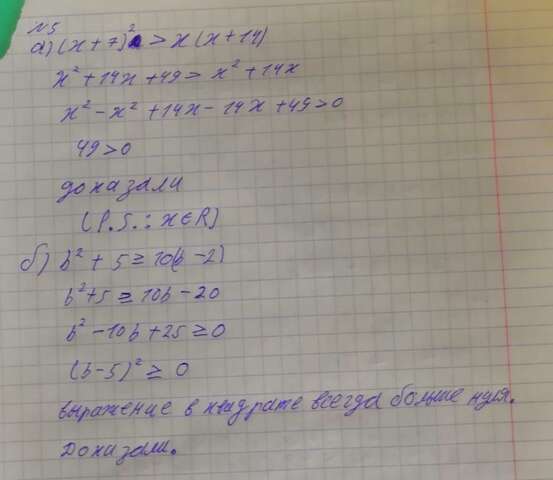 №5
а) (x+7)² > x(x+14)
x²+14x+49 > x²+14x
x²-x²+14x-14x+49>0
49>0
доказали
(P.S.: x∈R)
б) b²+5 ≥ 10(b-2)
b²+5 ≥ 10b-20
b²-10b+25 ≥ 0
(b-5)² ≥ 0
выражение в квадрате всегда больше нуля.
Доказали.